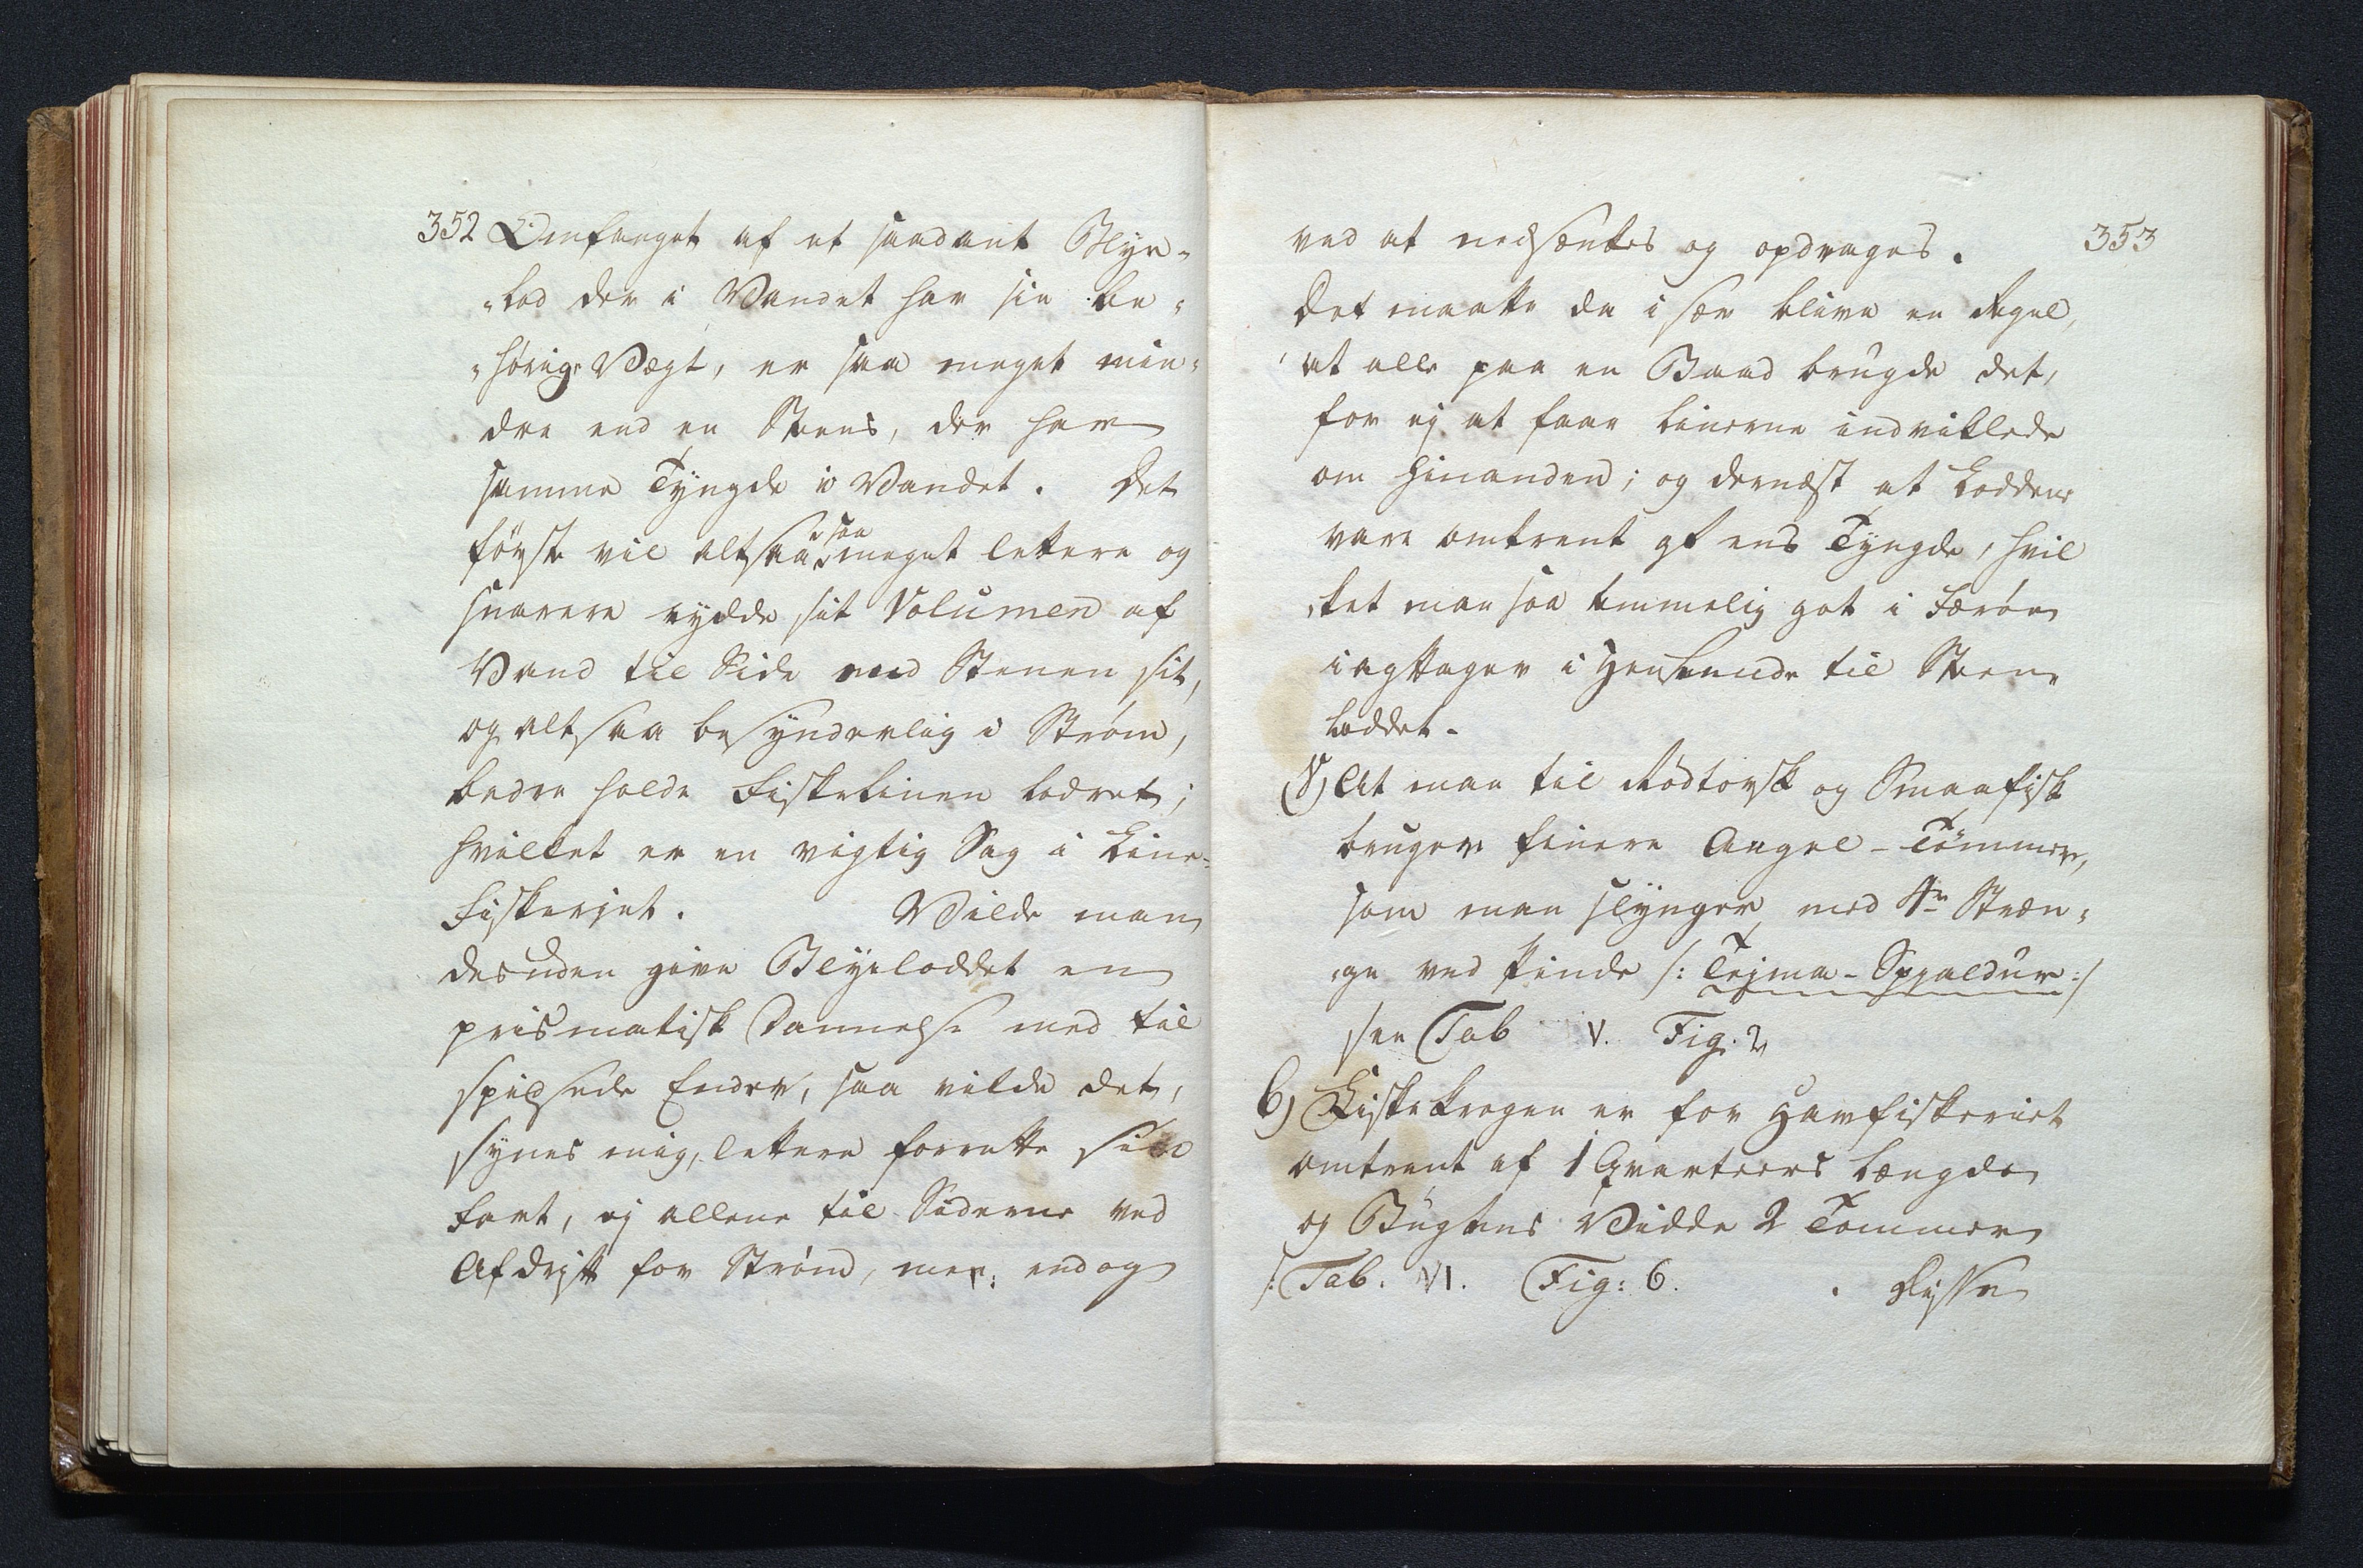 352 Omfanget af et saadant Blye-
-lod der i Vandet har sin be-
-hörige Vægt, er saa meget min-
dre end en Steens, der har
samme Tyngde i Vandet. Det
förste vil altsaa saa meget lettere og
snarere rydde sit Volumen af
Vand til Side end Stenen sit,
og altsaa besynderlig i Strøm,
bedre holde Fiskelinen lodret;
hvilket er en vigtig Sag i Line-
Fiskeriet. Vilde man
desuden give Blyeloddet en
prismatisk Dannelse med til
spidsede Ender, saa vilde det,
synes mig, lettere forrette sin
Fart, ej allene til Siderne ved
Afdrift for Strøm, men endog
353
ved at nedsænkes og opdrages.
Det maatte da i sær blive en Regel,
at alle paa en Baad brugde det,
for ej at faae Linerne indviklede
om hinanden; og dernæst at Loddene
vare omtrent af ens Tyngde, hvil
-ket man saa temmelig got i Færöe
iagttager i Henseende til Steen-
loddet.
At man til Rödtorsk og Smaafisk
bruger finere Angel-Tömmer,
som man slynger med 4re Stræn-
-ge ved Pinde /: Tejma-Spjaldur :/
see Tab V. Fig. 2
6) Fiskekrogen er for Havfiskeriet
omtrent af 1 Qvarteers Længde
og Bugtens Vidde 2 Tommer
/: Tab. VI. Fig: 6. Disse